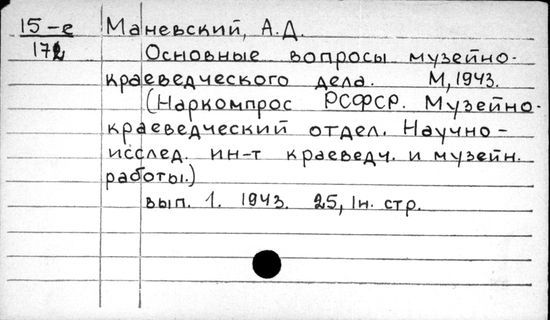 15-е Маневский, А.Д.
172 Основные вопросы музейно-
краеведческого дела. М, 1943.
(Наркомпрос РСФСР. Музейно-
краеведческий отдел. Научно-
исслед. ин-т краеведч. и музейн.
работы.)
вып. 1. 1943. 25, 1н. стр.